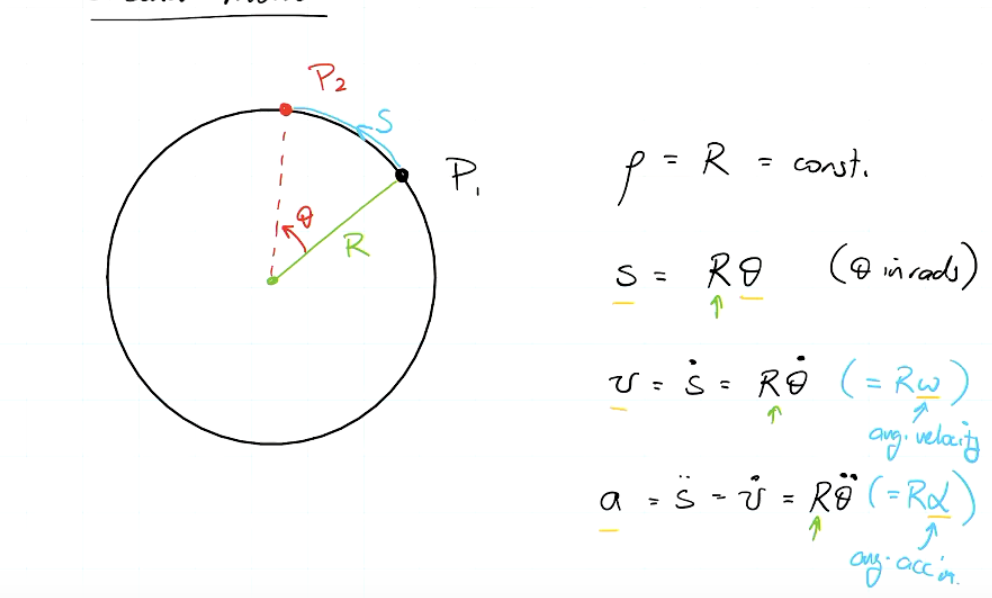 P₂
S
P₁
θ
R
ρ = R = const.
s = Rθ (θ in rads)
v = ṡ = Rθ̇ (= Rω)
ang. velocity
a = s̈ = v̇ = Rθ̈ (= Rα)
ang. acc'n.